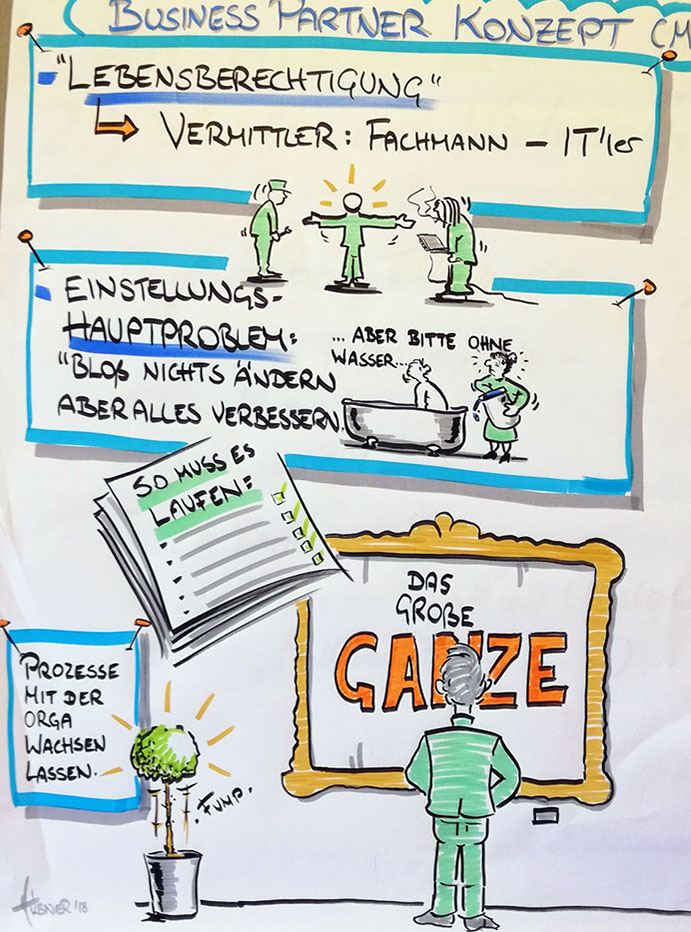 BUSINESS PARTNER KONZEPT (M
"LEBENSBERECHTIGUNG"
VERMITTLER: FACHMANN – IT'ler
EINSTELLUNGS-
HAUPTPROBLEM:
"BLOß NICHTS ÄNDERN
ABER ALLES VERBESSERN.
... ABER BITTE OHNE
WASSER...
SO MUSS ES
LAUFEN:
DAS
GROßE
GANZE
PROZESSE
MIT DER
ORGA
WACHSEN
LASSEN.
. FUMP.
HÜBNER '18